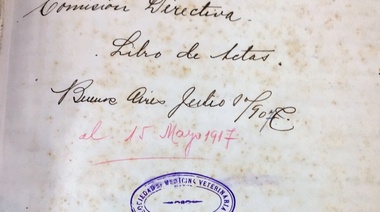 Comisión Directiva.
Libro de Actas.
Buenos Aires Julio 1º/907.
al 15 Mayo 1917.
SOCIEDAD MEDICINA VETERINARIA